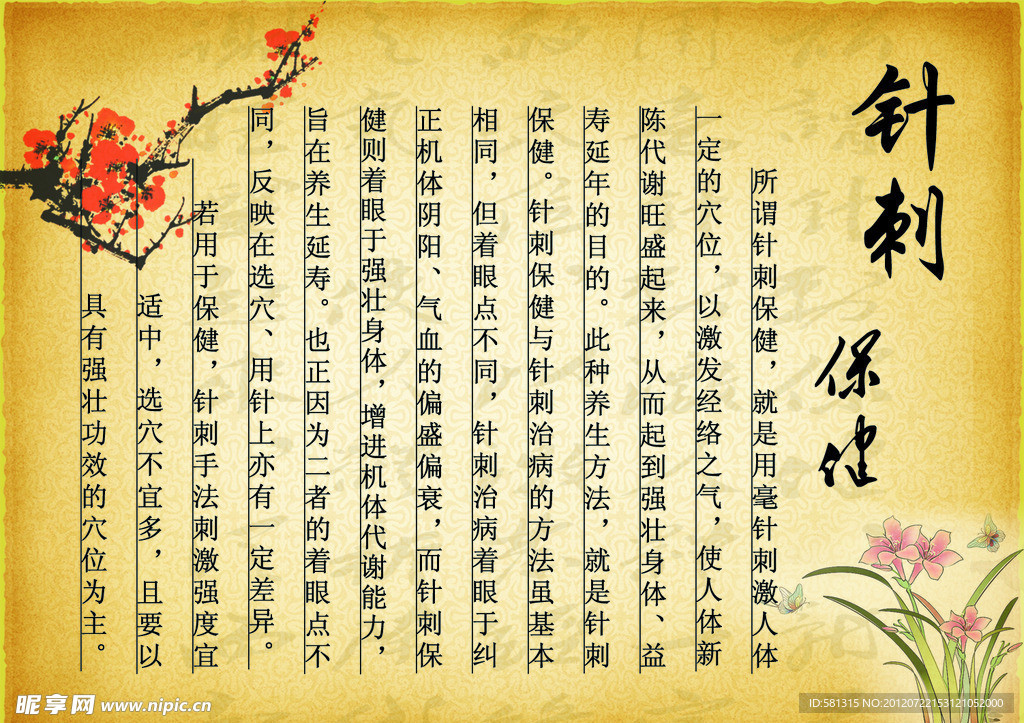 针刺
保健
所谓针刺保健，就是用毫针刺激人体
一定的穴位，以激发经络之气，使人体新
陈代谢旺盛起来，从而起到强壮身体、益
寿延年的目的。此种养生方法，就是针刺
保健。针刺保健与针刺治病的方法虽基本
相同，但着眼点不同，针刺治病着眼于纠
正机体阴阳、气血的偏盛偏衰，而针刺保
健则着眼于强壮身体，增进机体代谢能力，
旨在养生延寿。也正因为二者的着眼点不
同，反映在选穴、用针上亦有一定差异。
若用于保健，针刺手法刺激强度宜
适中，选穴不宜多，且要以
具有强壮功效的穴位为主。
昵享网 www.nipic.cn
ID:581315 NO:20120722153121052000